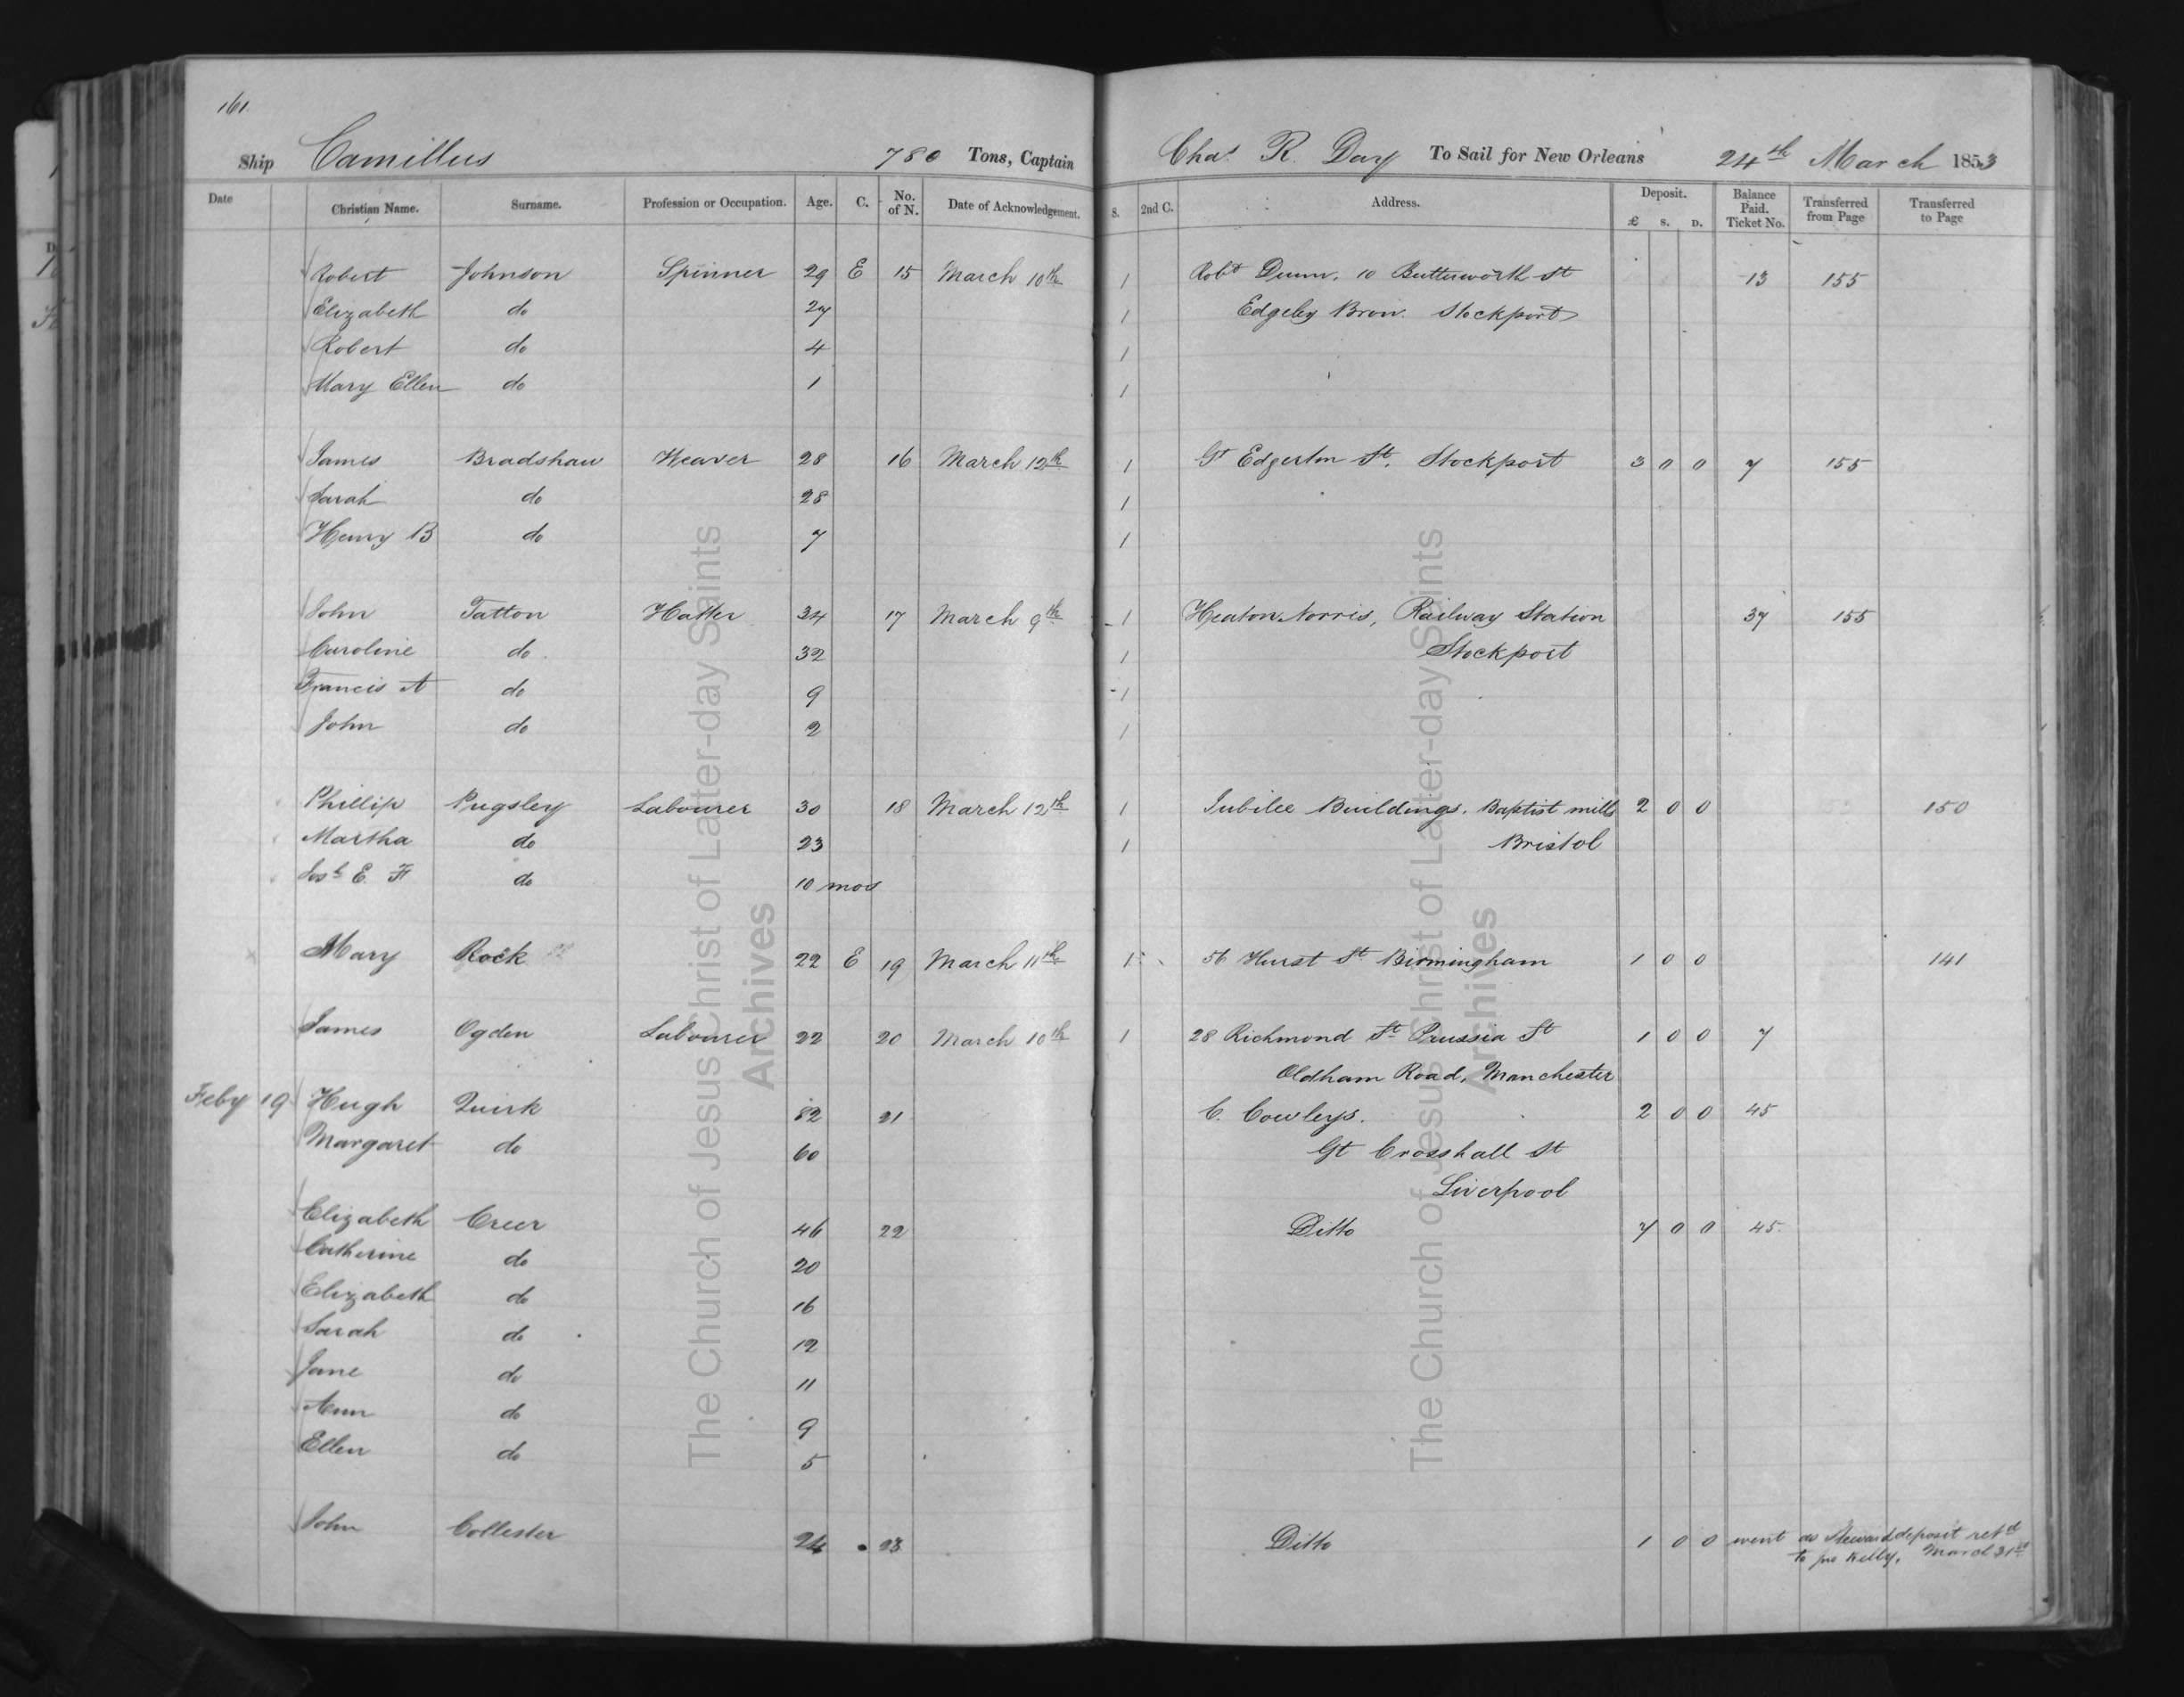 161.
Ship Camillus 780 Tons, Captain Chas. R. Day To Sail for New Orleans 24th March 1853
Date Christian Name. Surname. Profession or Occupation. Age. C. No. of N. Date of Acknowledgement. S. 2nd C. Address. Deposit. £ S. D. Balance Paid. Ticket No. Transferred from Page Transferred to Page
Robert Johnson Spinner 29 E 15 March 10th 1 Robt Dunn, 10 Butterworth St 13 155
Elizabeth do 27 1 Edgeley Brow. Stockport
Robert do 4 1
Mary Ellen do 1 1
James Bradshaw Weaver 28 16 March 12th 1 Gt Edgerton St. Stockport 3 0 0 7 155
Sarah do 28 1
Henry B do 7 1
John Tatton Hatter 34 17 March 9th 1 Heaton Norris, Railway Station 37 155
Caroline do 32 1 Stockport
Francis A do 9 1
John do 2 1
Phillip Pugsley Labourer 30 18 March 12th 1 Jubilee Buildings. Baptist mills 2 0 0 150
Martha do 23 1 Bristol
Josh E. F do 10 mos
Mary Rock 22 E 19 March 11th 1 56 Hurst St Birmingham 1 0 0 141
James Ogden Labourer 22 20 March 10th 1 28 Richmond St Prussia St 1 0 0 7
Oldham Road, Manchester
Feby 19 Hugh Quirk 82 21 C. Cowleys. 2 0 0 45
Margaret do 60 Gt Crosshall St
Liverpool
Elizabeth Creer 46 22 Ditto 7 0 0 45
Catherine do 20
Elizabeth do 16
Sarah do 12
Jane do 11
Ann do 9
Ellen do 5
John Collester 24 23 Ditto 1 0 0 went as Steward deposit retd
to Jno Kelly. March 31st
The Church of Jesus Christ of Latter-day Saints
Archives
The Church of Jesus Christ of Latter-day Saints
Archives